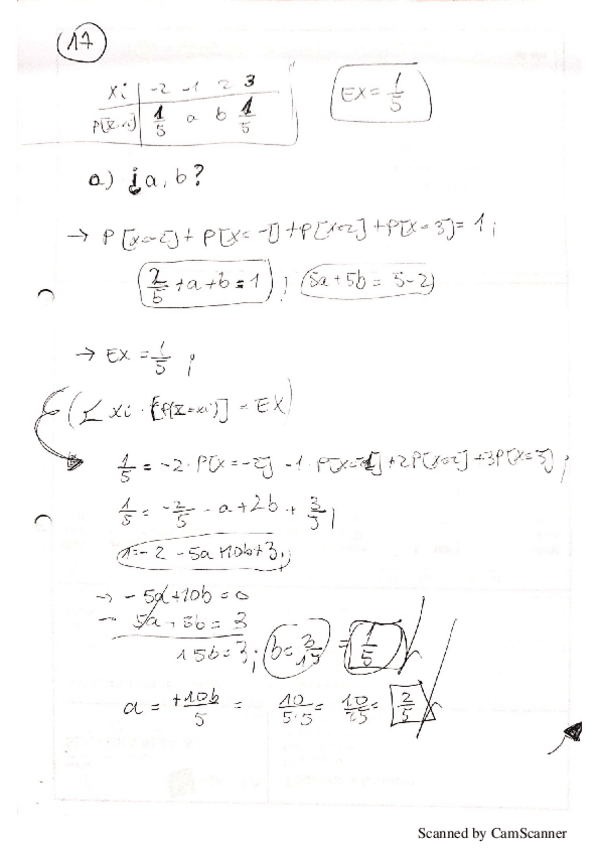 17
xi | -2 -1 2 3
P[X=xi] | 1/5 a b 1/5
EX = 1/5
a) ¿a, b?
→ P[X=-2] + P[X=-1] + P[X=2] + P[X=3] = 1;
2/5 + a + b = 1 ; 5a + 5b = 5-2
→ EX = 1/5 ;
(Σ xi · [P(X=xi)] = EX)
1/5 = -2 · P[X=-2] -1 · P[X=-1] + 2P[X=2] + 3P[X=3] ;
1/5 = -2/5 - a + 2b + 3/5 ;
1 = -2 - 5a + 10b + 3;
→ - 5a + 10b = 0
5a + 5b = 3
15b = 3 ; b = 3/15 = 1/5
a = +10b/5 = 10/5·5 = 10/25 = 2/5
Scanned by CamScanner